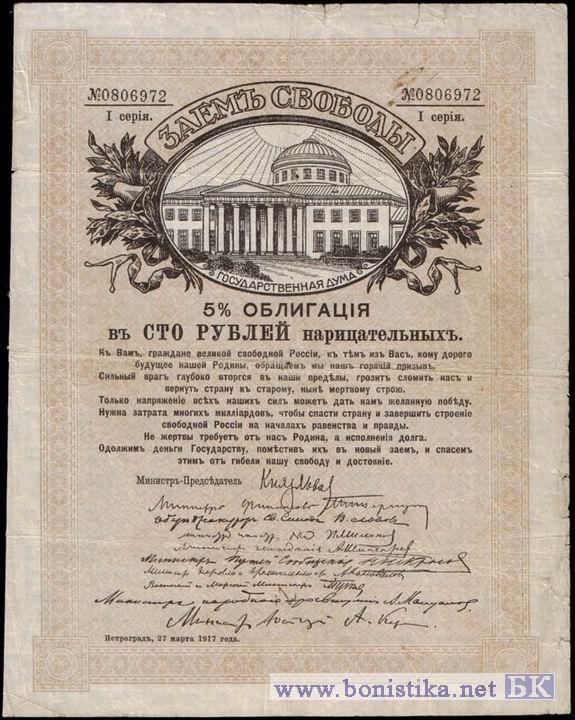 №0806972 №0806972
I серія. I серія.
ЗАЕМЪ СВОБОДЫ
ГОСУДАРСТВЕННАЯ ДУМА
5% ОБЛИГАЦІЯ
въ СТО РУБЛЕЙ нарицательныхъ.
Къ Вамъ, граждане великой свободной Россіи, къ тѣмъ изъ Васъ, кому дорого
будущее нашей Родины, обращаемъ мы нашъ горячій призывъ.
Сильный врагъ глубоко вторгся въ наши предѣлы, грозитъ сломить насъ и
вернуть страну къ старому, нынѣ мертвому строю.
Только напряженіе всѣхъ нашихъ силъ можетъ дать намъ желанную побѣду.
Нужна затрата многихъ милліардовъ, чтобы спасти страну и завершить строеніе
свободной Россіи на началахъ равенства и правды.
Не жертвы требуетъ отъ насъ Родина, а исполненія долга.
Одолжимъ деньги Государству, помѣстивъ ихъ въ новый заемъ, и спасемъ
этимъ отъ гибели нашу свободу и достояніе.
Министръ-Предсѣдатель Князь Львов
Министръ финансовъ
Оберъ Прокуроръ Св. Синода В. Львов
Министръ земледѣлія А. Шингарев
Министръ Путей Сообщенія
Министръ торговли и промышленности А. Коновалов
Военный и Морской Министръ
Министръ народнаго просвѣщенія А. Мануилов
Министръ Юстиціи А. Кер
Петроградъ, 27 марта 1917 года.
www.bonistika.net БК